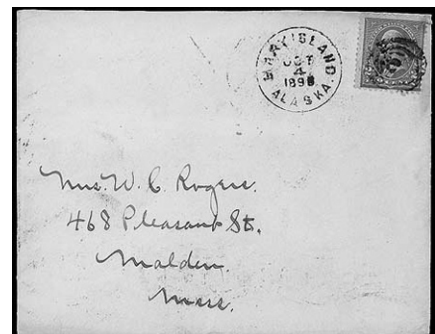 MARY ISLAND
OCT
4
1898
ALASKA.
Mrs. W. C. Rogers.
468 Pleasant St.
Malden
Mass.